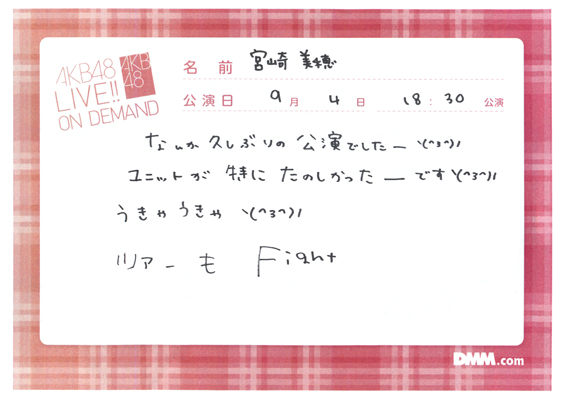 AKB48
LIVE!!
ON DEMAND
AKB
48
名前 宮崎 美穂
公演日 9月 4日 18:30 公演
なんか久しぶりの公演でしたー ヽ(^3^)ノ
ユニットが 特に たのしかったーです ヽ(^3^)ノ
うきゃうきゃ ヽ(^3^)ノ
ツアーも Fight
DMM.com